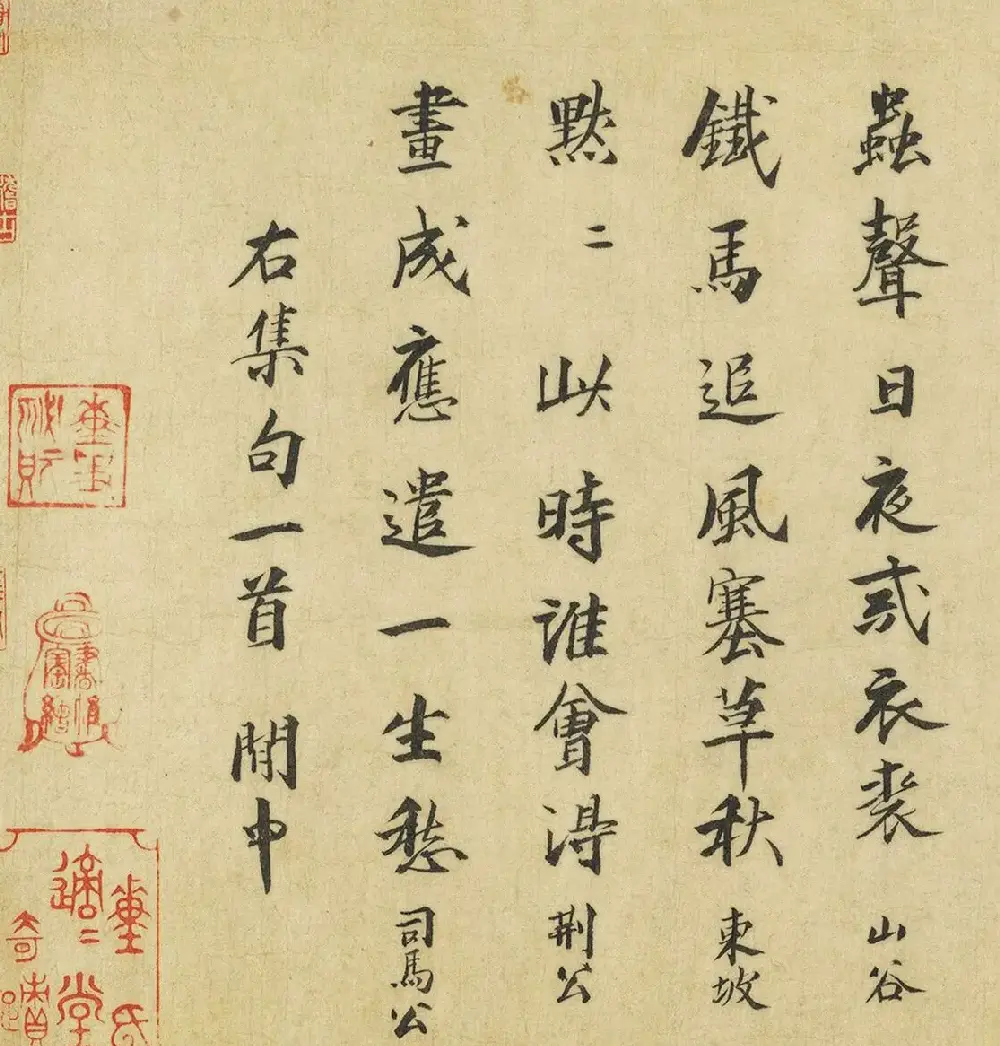 蟲聲日夜戒衣裘 山谷
鐵馬追風塞草秋 東坡
黙〻此時誰會得 荊公
畫成應遣一生愁 司馬公
右集句一首 閒中